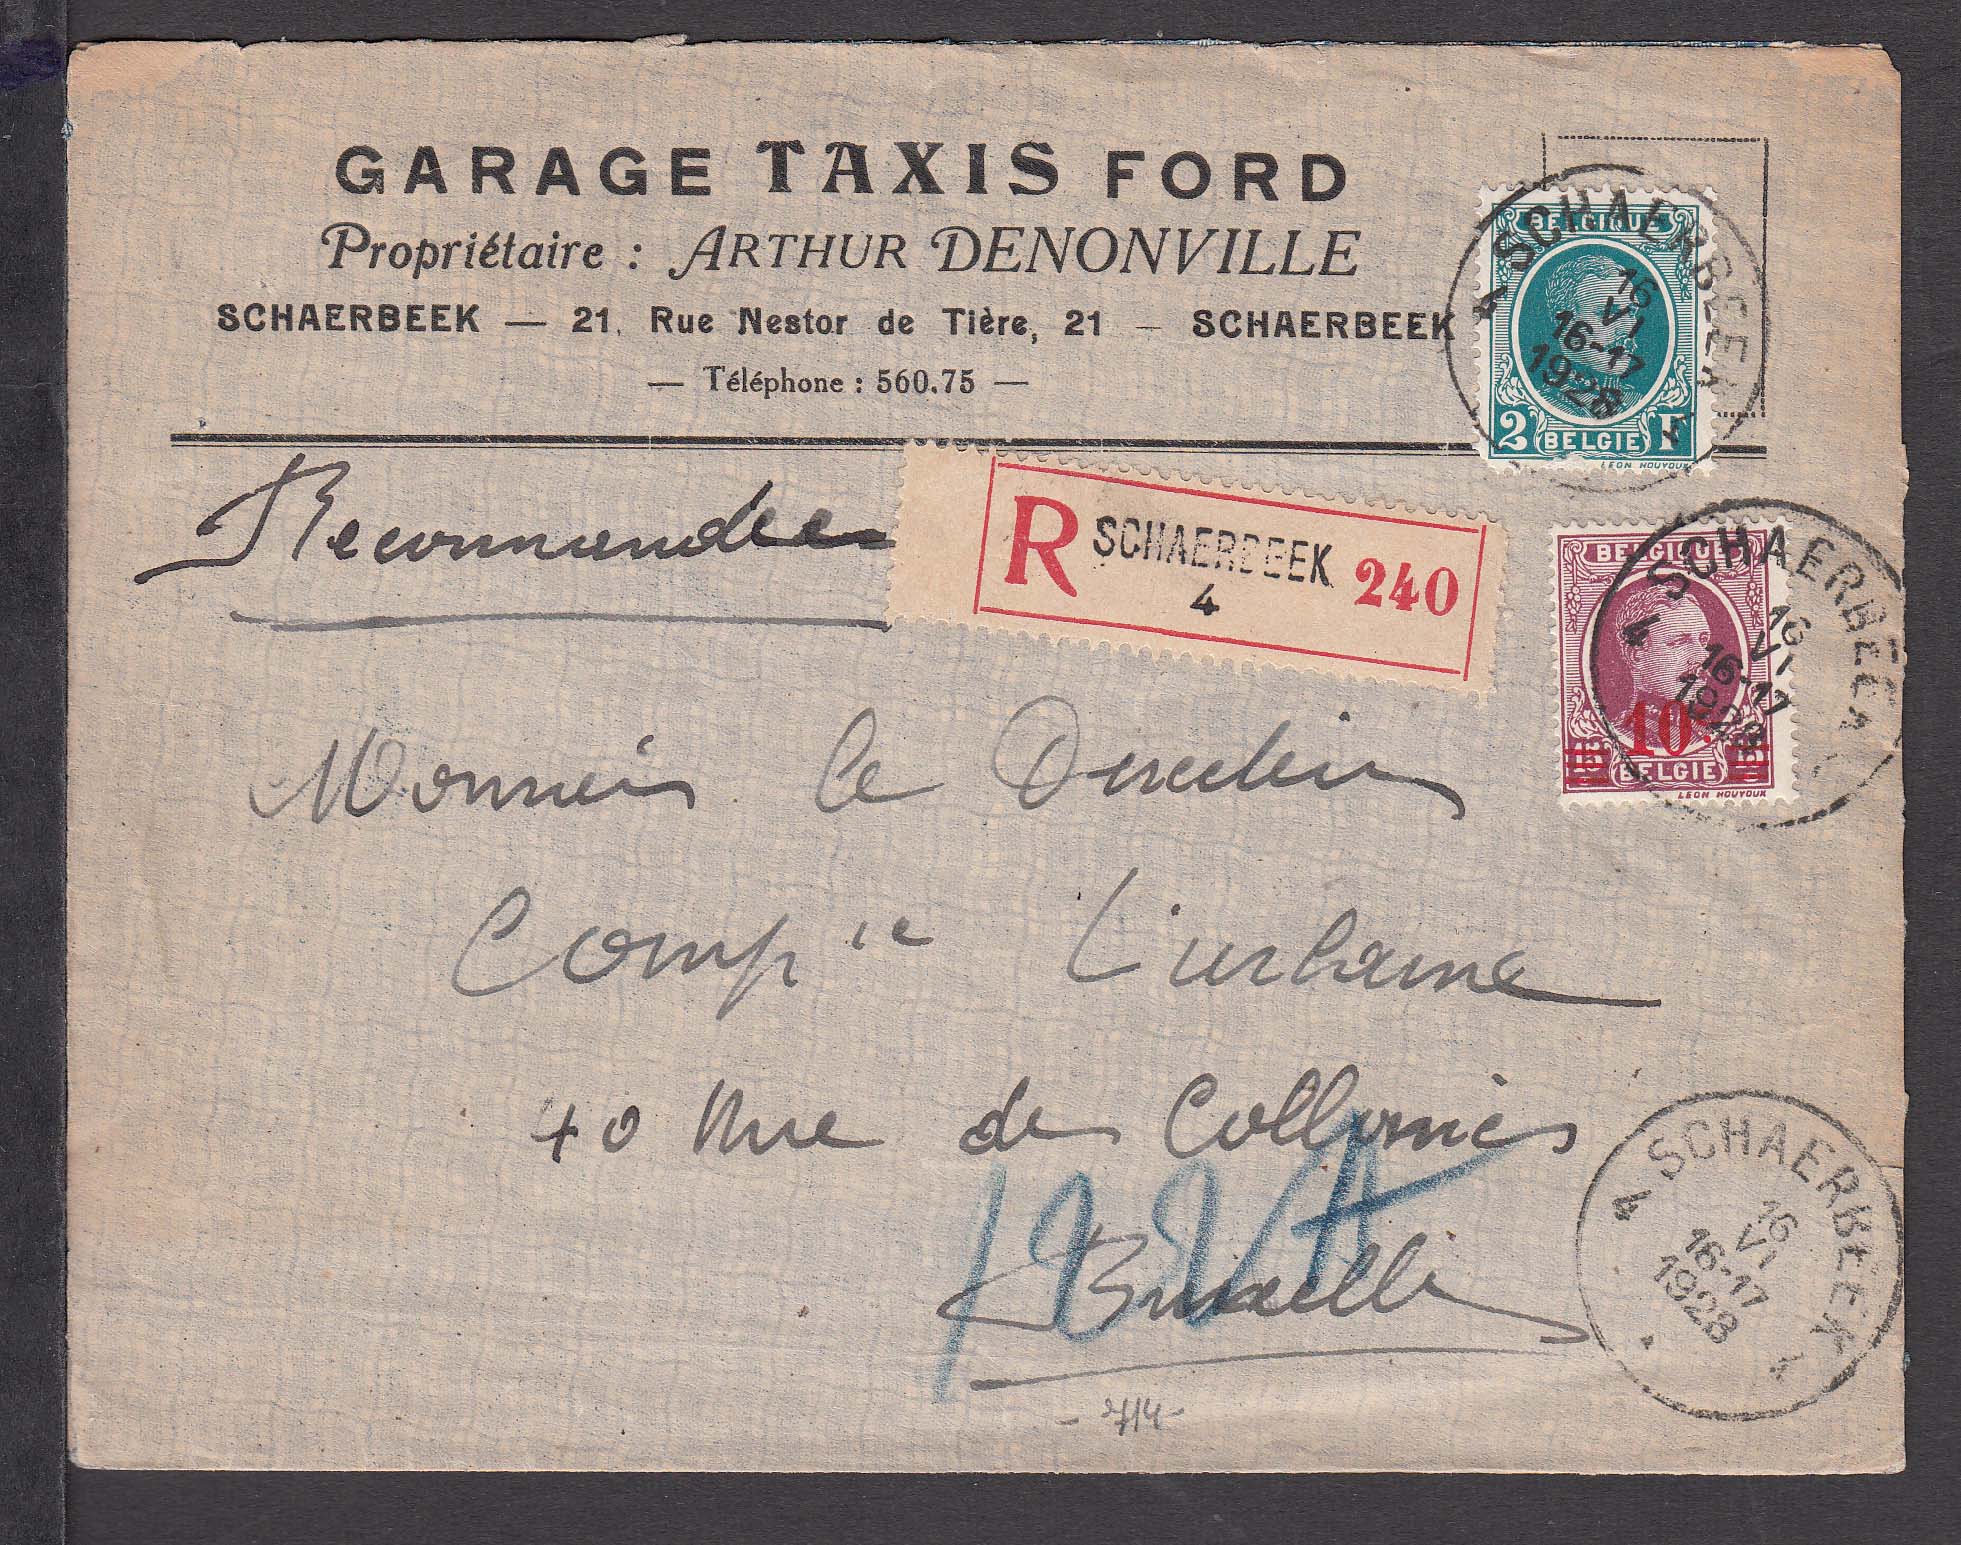 GARAGE TAXIS FORD
Propriétaire : ARTHUR DENONVILLE
SCHAERBEEK — 21, Rue Nestor de Tière, 21 — SCHAERBEEK
— Téléphone : 560.75 —
BELGIQUE
2 BELGIE F
LEON HOUYOUX
4 SCHAERBEEK 4
16
VI
16-17
1928
Recommandee
R SCHAERBEEK 240
4
BELGIQUE
10c
15 BELGIE 15
LEON HOUYOUX
4 SCHAERBEEK
16
VI
16-17
1928
Monsieur le Directeur
Compie L'urbaine
40 Rue de Collonies
Bruxelles
4 SCHAERBEEK 4
16
VI
16-17
1928